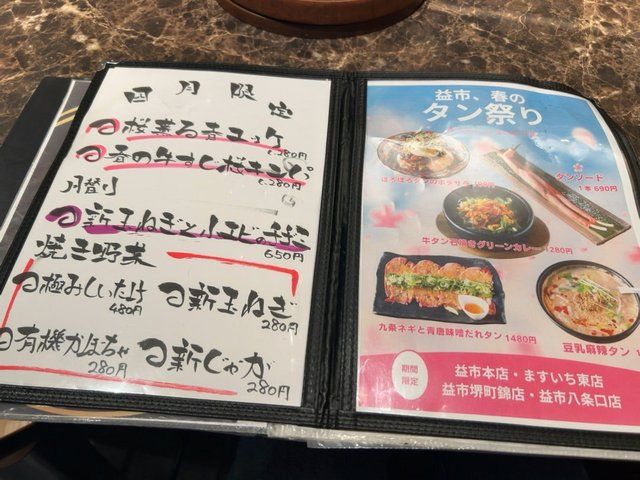 四月限定
桜薫る春ユッケ
1,280円
春の牛すし桜キンパ
1,280円
月替り
新玉ねぎと小エビのチヂミ
650円
焼き野菜
極みしいたけ
480円
新玉ねぎ
280円
有機かぼちゃ
280円
新じゃが
280円
益市、春の
タン祭り
タンソード
1本 690円
牛タン石焼きグリーンカレー 1280円
九条ネギと青唐味噌だれタン 1480円
豆乳麻辣タン
期間
限定
益市本店・ますいち東店
益市堺町錦店・益市八条口店